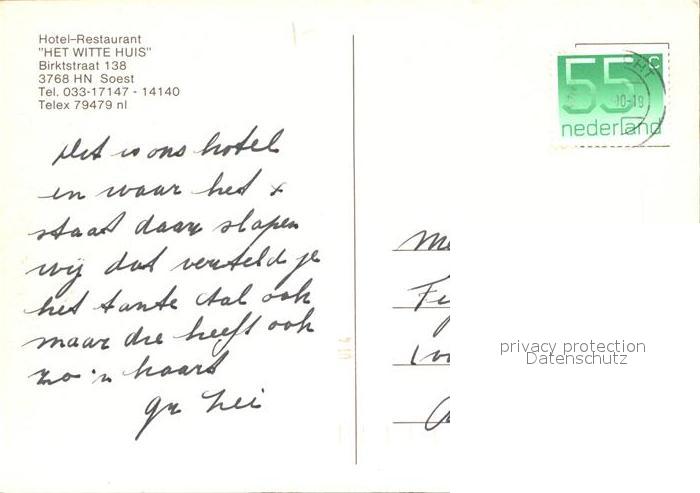 Hotel-Restaurant
"HET WITTE HUIS"
Birktstraat 138
3768 HN Soest
Tel. 033-17147 - 14140
Telex 79479 nl
Dit is ons hotel
en waar het x
staat daar slapen
wij dat verteld je
het tante Stal ook
maar die heeft ook
zo'n kaart
gr Lei
55 c
nederland
privacy protection
Datenschutz